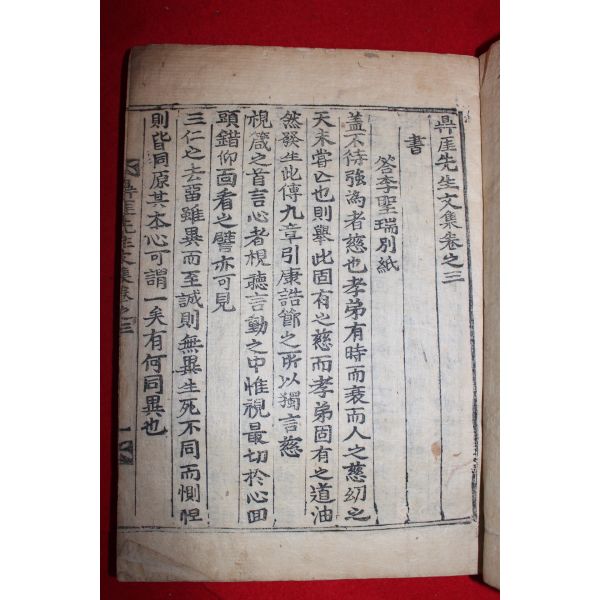 鼎厓先生文集卷之三
書
答李聖瑞別紙
盖不待強爲者慈也孝弟有時而衰而人之慈幼之
天未嘗亡也則擧此固有之慈而孝弟固有之道油
然發生此傳九章引康誥節之所以獨言慈
視箴之首言心者視聽言動之中惟視最切於心回
頭錯仰面看之譬亦可見
三仁之去留雖異而至誠則無異生死不同而惻怛
則皆同原其本心可謂一矣有何同異也
鼎厓先生文集卷之三
一